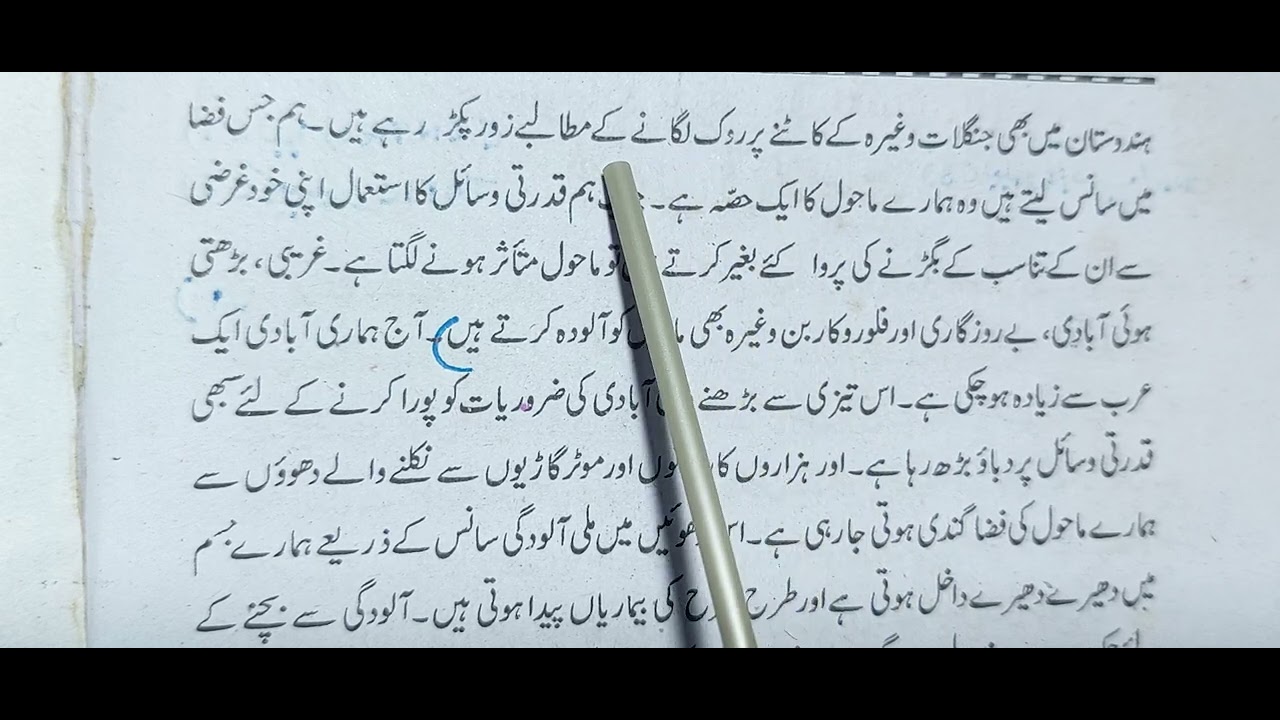 ہندوستان میں بھی جنگلات وغیرہ کے کاٹنے پر روک لگانے کے مطالبے زور پکڑ رہے ہیں۔ ہم جس فضا
میں سانس لیتے ہیں وہ ہمارے ماحول کا ایک حصّہ ہے۔ ہم قدرتی وسائل کا استعمال اپنی خود غرضی
سے ان کے تناسب کے بگڑنے کی پروا کئے بغیر کرتے تو ماحول متأثر ہونے لگتا ہے۔ غریبی، بڑھتی
ہوئی آبادی، بے روزگاری اور فلورو کاربن وغیرہ بھی کو آلودہ کرتے ہیں۔ آج ہماری آبادی ایک
عرب سے زیادہ ہو چکی ہے۔ اس تیزی سے بڑھنے آبادی کی ضروریات کو پورا کرنے کے لئے سبھی
قدرتی وسائل پر دباؤ بڑھ رہا ہے۔ اور ہزاروں اور موٹر گاڑیوں سے نکلنے والے دھوؤں سے
ہمارے ماحول کی فضا گندی ہوتی جا رہی ہے۔ اس دھوئیں میں ملی آلودگی سانس کے ذریعے ہمارے جسم
میں دھیرے دھیرے داخل ہوتی ہے اور طرح طرح کی بیماریاں پیدا ہوتی ہیں۔ آلودگی سے بچنے کے